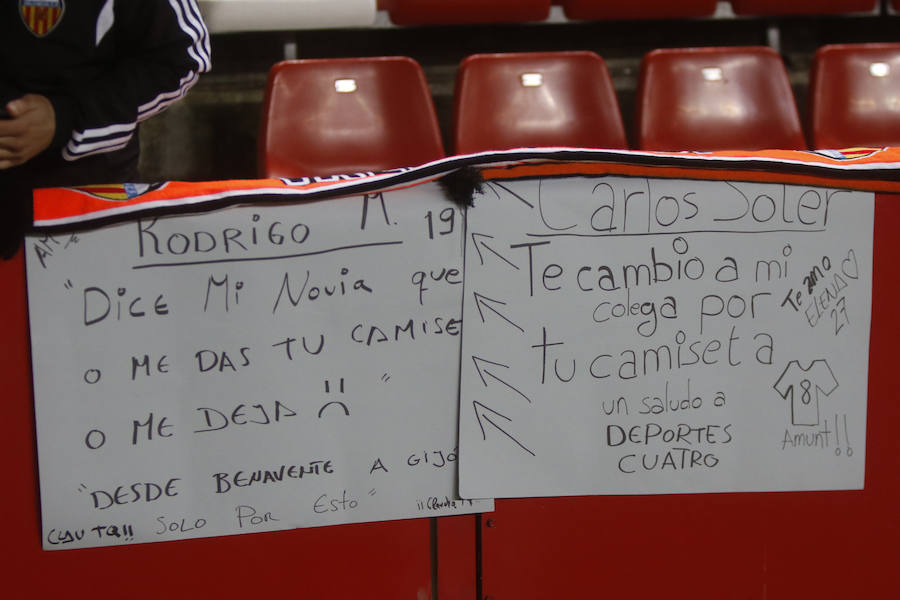 Rodrigo M. 19
"Dice Mi Novia que
o ME DAS TU CAMISE
o ME DEJA "
"DESDE BENAVENTE A GIJÓ
SOLO POR ESTO"
Carlos Soler
Te cambio a mi
colega por
tu camiseta
un saludo a
DEPORTES
CUATRO
Te amo
ELENA
27
8
Amunt!!